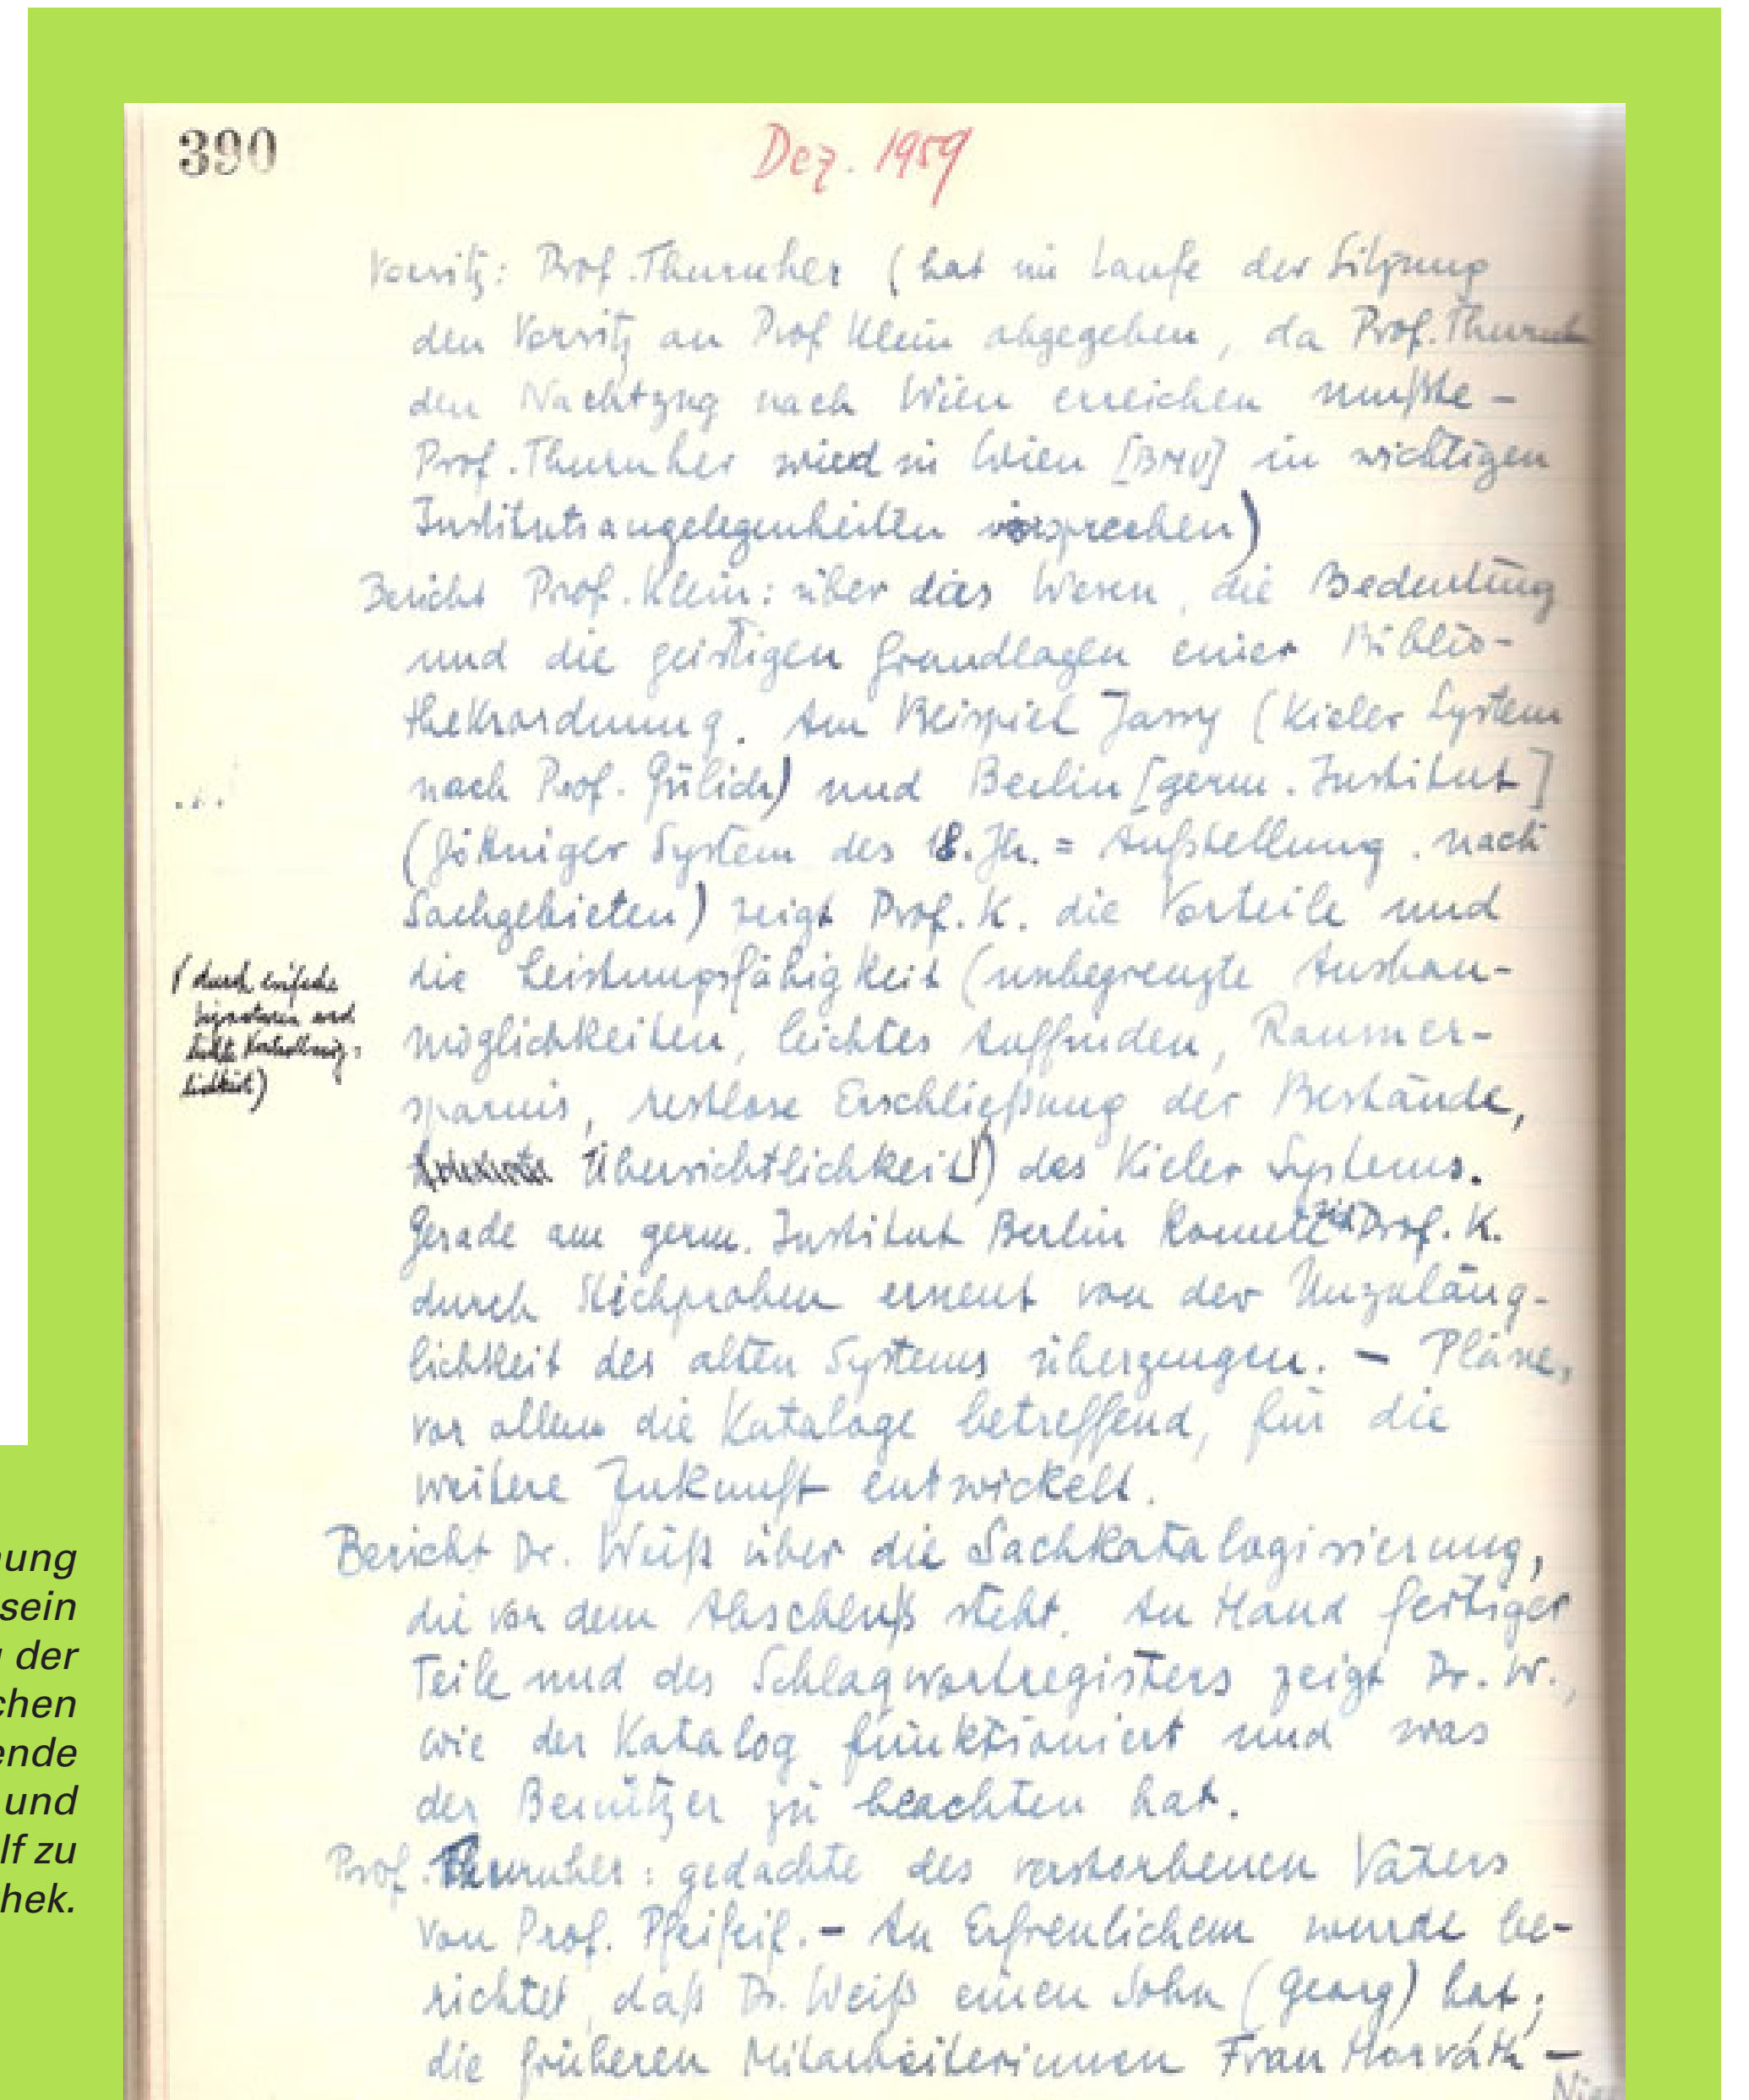 390
Dez. 1959
Vorsitz: Prof. Thurnher (hat im Laufe der Sitzung
den Vorsitz an Prof Klein abgegeben, da Prof. Thurnh
den Nachtzug nach Wien erreichen mußte –
Prof. Thurnher wird in Wien [BMU] in wichtigen
Institutsangelegenheiten vorsprechen)
Bericht Prof. Klein: über das Wesen, die Bedeutung
und die geistigen Grundlagen einer Biblio-
theksordnung. Am Beispiel Jassy (Kieler System
nach Prof. Gülich) und Berlin [germ. Institut]
(System des 18. Jh. = Aufstellung nach
Sachgebieten) zeigt Prof. K. die Vorteile und
die Leistungsfähigkeit (unbegrenzte Ausbau-
möglichkeiten, leichtes Auffinden, Raumer-
sparnis, restlose Erschließung der Bestände,
Übersichtlichkeit) des Kieler Systems.
(durch einfache
Signaturen und
Gerade am germ. Institut Berlin konnte sich Prof. K.
durch Stichproben erneut von der Unzuläng-
lichkeit des alten Systems überzeugen. – Pläne,
vor allem die Kataloge betreffend, für die
weitere Zukunft entwickelt.
Bericht Dr. Weiß über die Sachkatalogisierung,
die vor dem Abschluß steht. An Hand fertiger
Teile und des Schlagwortregisters zeigt Dr. W.,
wie der Katalog funktioniert und was
der Benützer zu beachten hat.
Prof. Thurnher: gedachte des verstorbenen Vaters
von Prof. – An Erfreulichem wurde be-
richtet, daß Dr. Weiß einen Sohn (Georg) hat;
die früheren Mitarbeiterinnen Frau Horváth –
ung
sein
der
chen
ende
und
lf zu
hek.